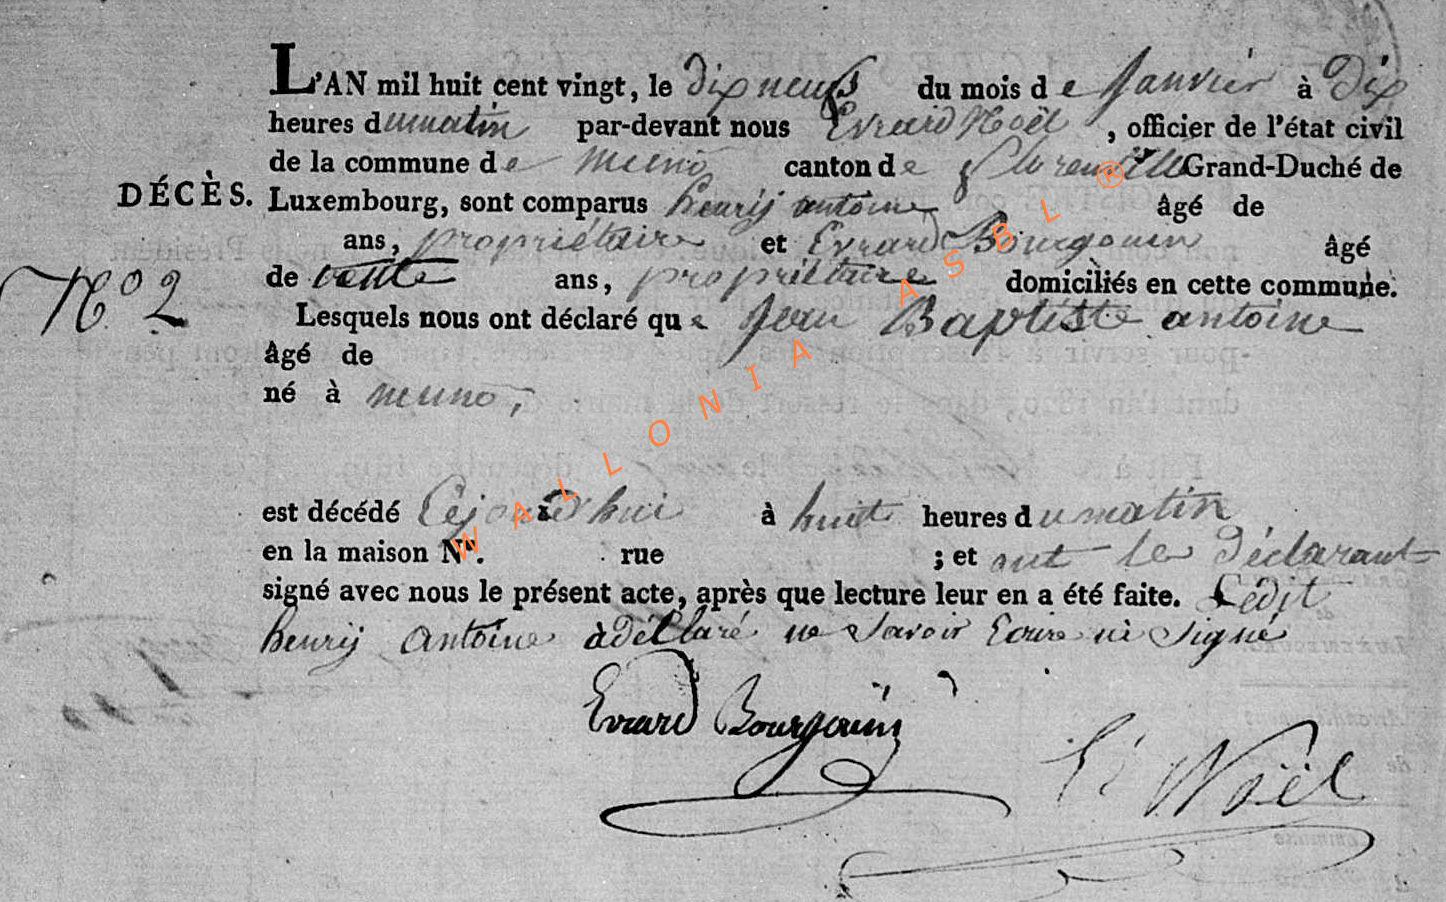 L'AN mil huit cent vingt, le dix neuf du mois de Janvier à Dix
heures du matin par-devant nous Evrard Noël, officier de l'état civil
de la commune de muno canton de florenville Grand-Duché de
DÉCÈS. Luxembourg, sont comparus henrij antoine âgé de
ans, propriétaire et Evrard Bourgouin âgé
de ans, propriétaire domiciliés en cette commune.
N.º 2
Lesquels nous ont déclaré que Jean Baptiste antoine
âgé de
né à muno,
est décédé Cejourd'hui à huit heures du matin
en la maison N.º rue ; et ont le Déclarant
signé avec nous le présent acte, après que lecture leur en a été faite. Ledit
henrij Antoine à déClaré ne Savoir Ecrire ni Signé
Evrard Bourgouin
E Noël
WALLONIA ASBL ®